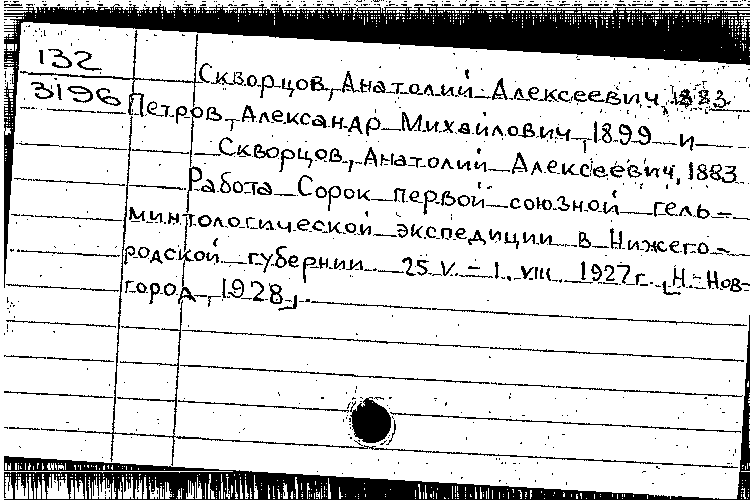 132
Скворцов, Анатолий Алексеевич, 1883
3196
Петров, Александр Михайлович, 1899 и
Скворцов, Анатолий Алексеевич, 1883
Работа Сорок первой союзной гель-
минтологической экспедиции в Нижего-
родской губернии 25.V.-1.VIII. 1927г. [Н.-Нов-
город, 1928].